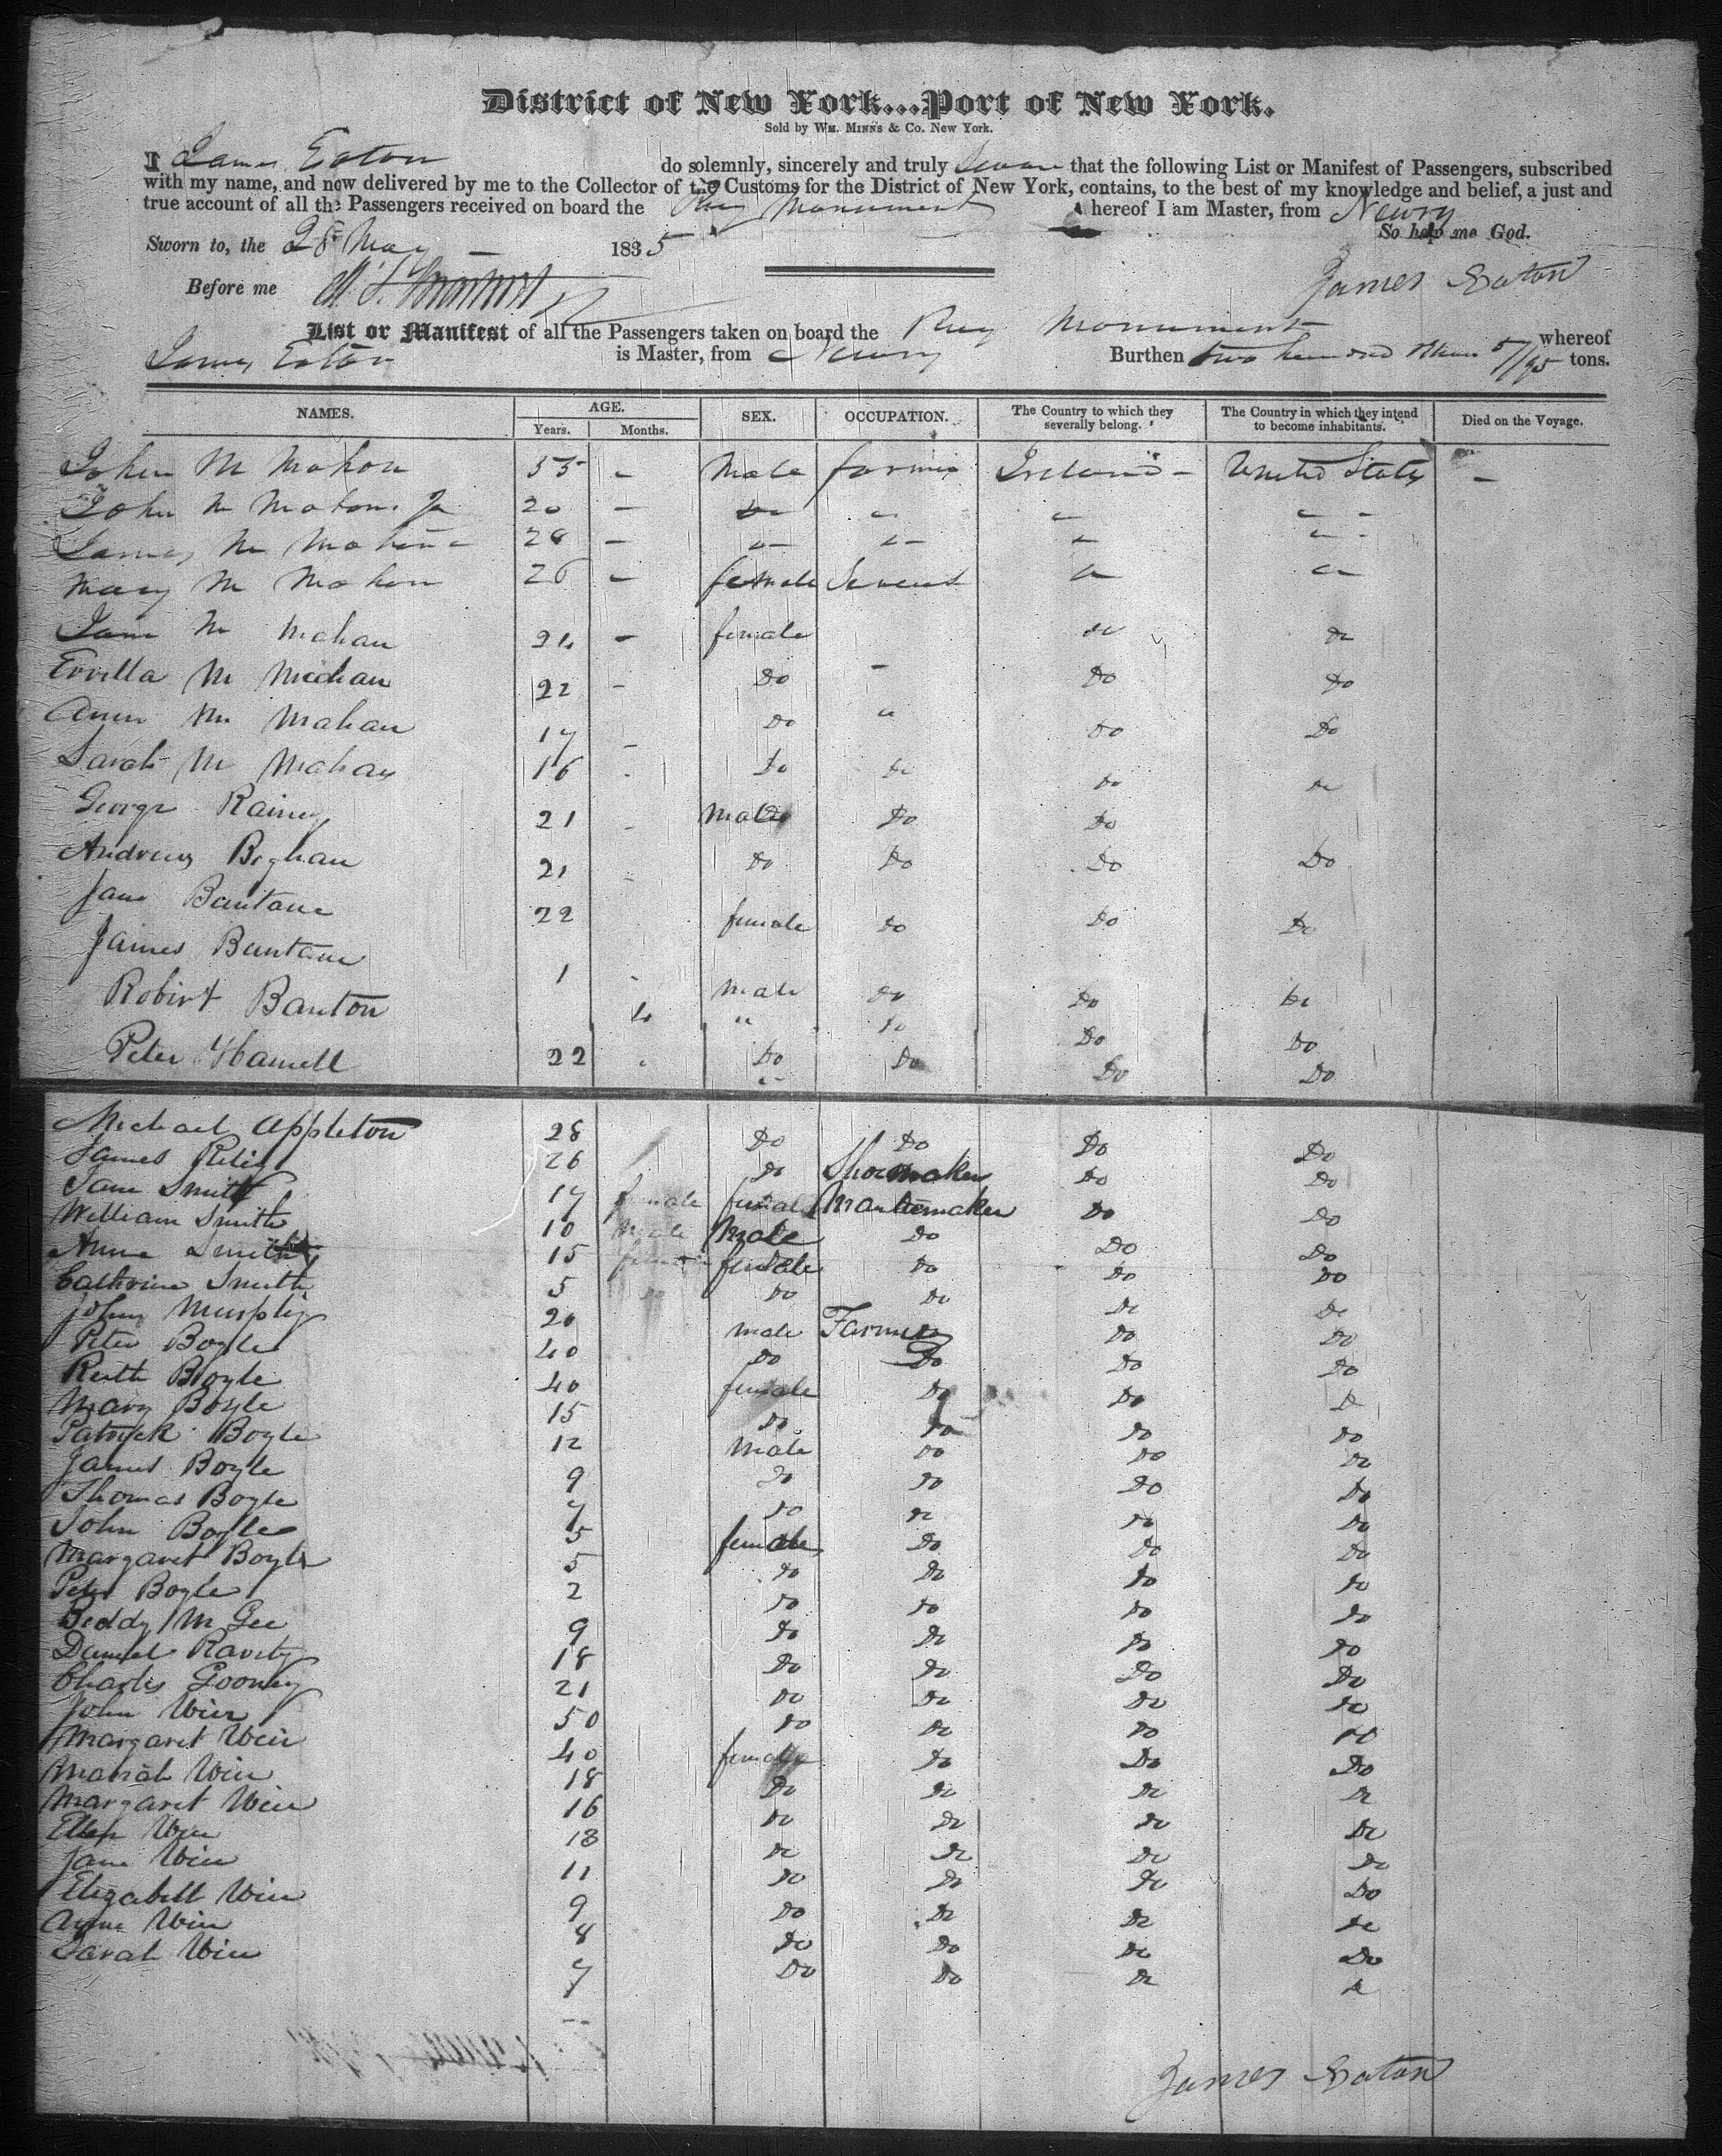 District of New York...Port of New York.
Sold by WM. MINNS & Co. New York.
I James Eaton do solemnly, sincerely and truly Swear that the following List or Manifest of Passengers, subscribed
with my name, and now delivered by me to the Collector of the Customs for the District of New York, contains, to the best of my knowledge and belief, a just and
true account of all the Passengers received on board the Brig Monument whereof I am Master, from Newry
Sworn to, the 28 May 1835 So help me God.
Before me James Eaton
List or Manifest of all the Passengers taken on board the Brig Monument whereof
James Eaton is Master, from Newry Burthen two hundred three 5/95 tons.
NAMES. AGE. SEX. OCCUPATION. The Country to which they severally belong. The Country in which they intend to become inhabitants. Died on the Voyage.
Years. Months.
John Mc Mahon 55 - Male farmer Ireland - United States -
John Mc Mahon Jr 20 - Do " " "
James Mc Mahon 28 - " " " "
Mary Mc Mahon 26 - female Servent " "
Jane Mc Mahan 24 - female do do
Mc Mahan 22 - Do - Do Do
Ann Mc Mahan 17 - Do " Do Do
Sarah Mc Mahan 16 - Do do do do
George Rainey 21 - Male Do Do
Andrew Beghan 21 - Do Do Do Do
Jane Bantane 22 female do Do Do
James Bantane 1 - male do Do do
Robirt Banton 4 " do Do Do
Peter Hamell 22 " Do Do Do Do
Michael Appleton 28 Do Do Do Do
James Reily 26 Do Shoemaker Do Do
Jane Smith 17 female female Mantemaker Do Do
William Smith 10 male Male Do Do Do
Anne Smith 15 female female Do Do Do
Catherine Smith 5 do Do Do Do Do
John Murphy 20 male Farmer Do Do
Peter Boyle 40 Do Do Do Do
Ruth Boyle 40 female Do Do D
Mary Boyle 15 Do Do Do Do
Patrick Boyle 12 Male Do Do Do
James Boyle 9 Do Do Do Do
Thomas Boyle 7 Do Do Do Do
John Boyle 5 female Do Do Do
Margaret Boyle 5 Do Do Do Do
Peter Boyle 2 Do Do Do Do
Beddy Mc Gee 9 Do Do Do Do
Daniel Ravity 18 Do Do Do Do
Charles Gooney 21 Do Do Do Do
John Wier 50 Do Do Do Do
Margaret Weir 40 female Do Do Do
Mariah Wier 18 Do Do Do Do
Margaret Weir 16 Do Do Do Do
Ellen Wier 13 Do Do Do Do
Jane Wier 11 Do Do Do Do
Elizabell Wier 9 Do Do Do Do
Anne Wier 8 Do Do Do Do
Sarah Wier 7 Do Do Do Do
James Eaton